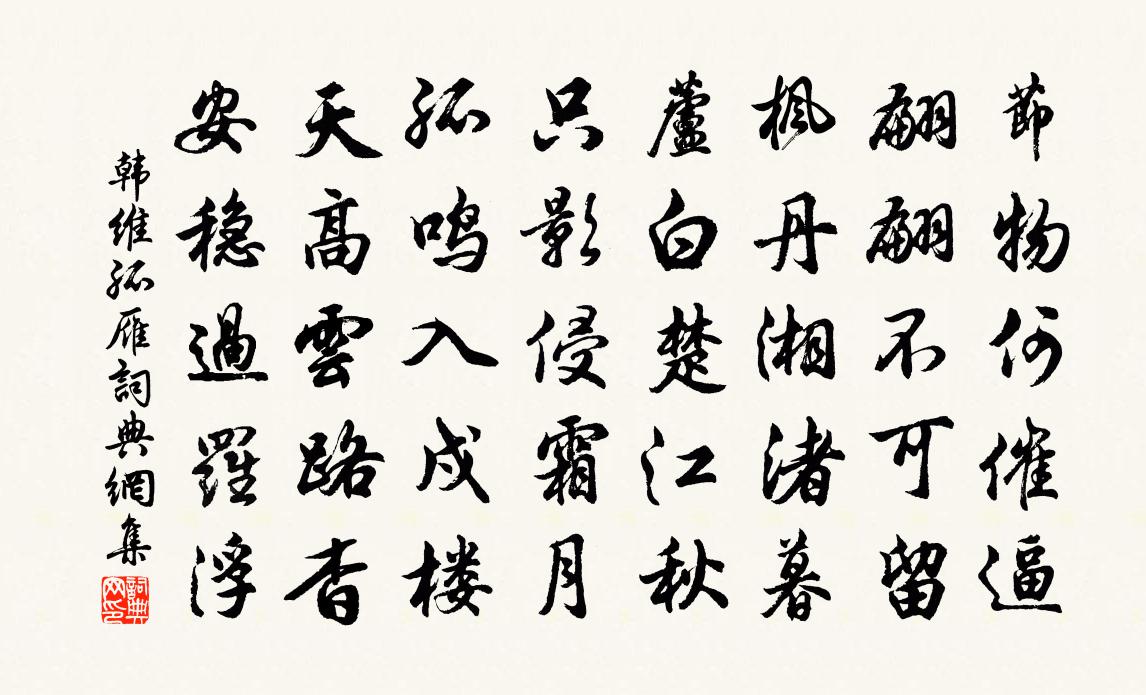 節物何催逼
翩翩不可留
枫丹湘渚暮
蘆白楚江秋
只影侵霜月
孤鸣入戍楼
天高雲路杳
安稳過羅浮
韩维孤雁詞典網集
詞典